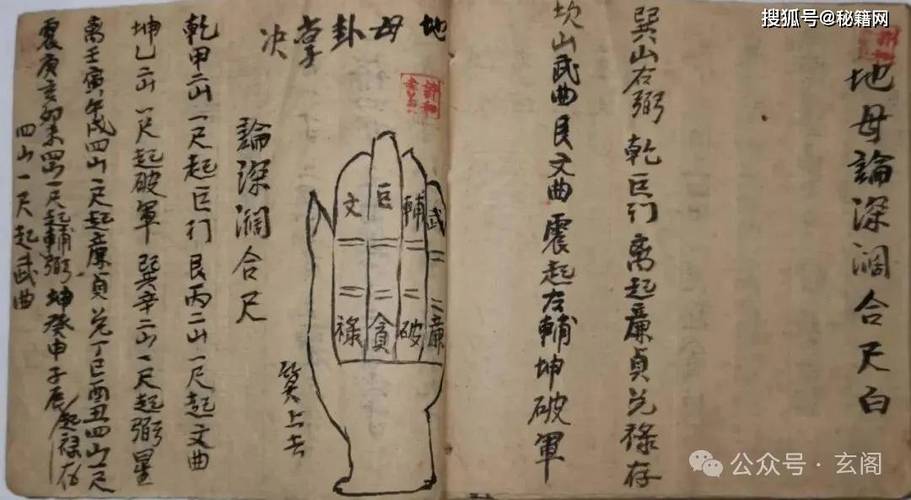 搜狐号@秘籍网
地母論深濶合尺白
巽山右弼乾巨门离起廉貞兑祿存
坎山武曲艮文曲震起左輔坤破軍
地母卦掌决
武輔巨文
廉破貪祿
上去
論深濶合尺
乾甲二山一尺起巨门艮丙二山一尺起文曲
坤乙二山一尺起破軍巽辛二山一尺起弼星
离壬寅午戌四山一尺起廉貞兑丁巳酉丑四山一尺
起祿存
震庚亥卯未四山一尺起輔弼坤癸申子辰
四山一尺起武曲
公众号·玄阁